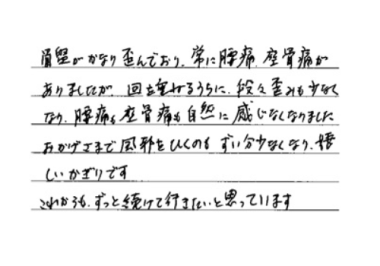 骨盤がかなり歪んでおり、常に腰痛、座骨痛が
ありましたが、回を重ねるうちに、段々歪みも少なく
なり、腰痛も座骨痛も自然に感じなくなりました
おかげさまで風邪をひくのもずい分少なくなり、嬉
しいかぎりです
これからも、ずっと続けて行きたいと思っています